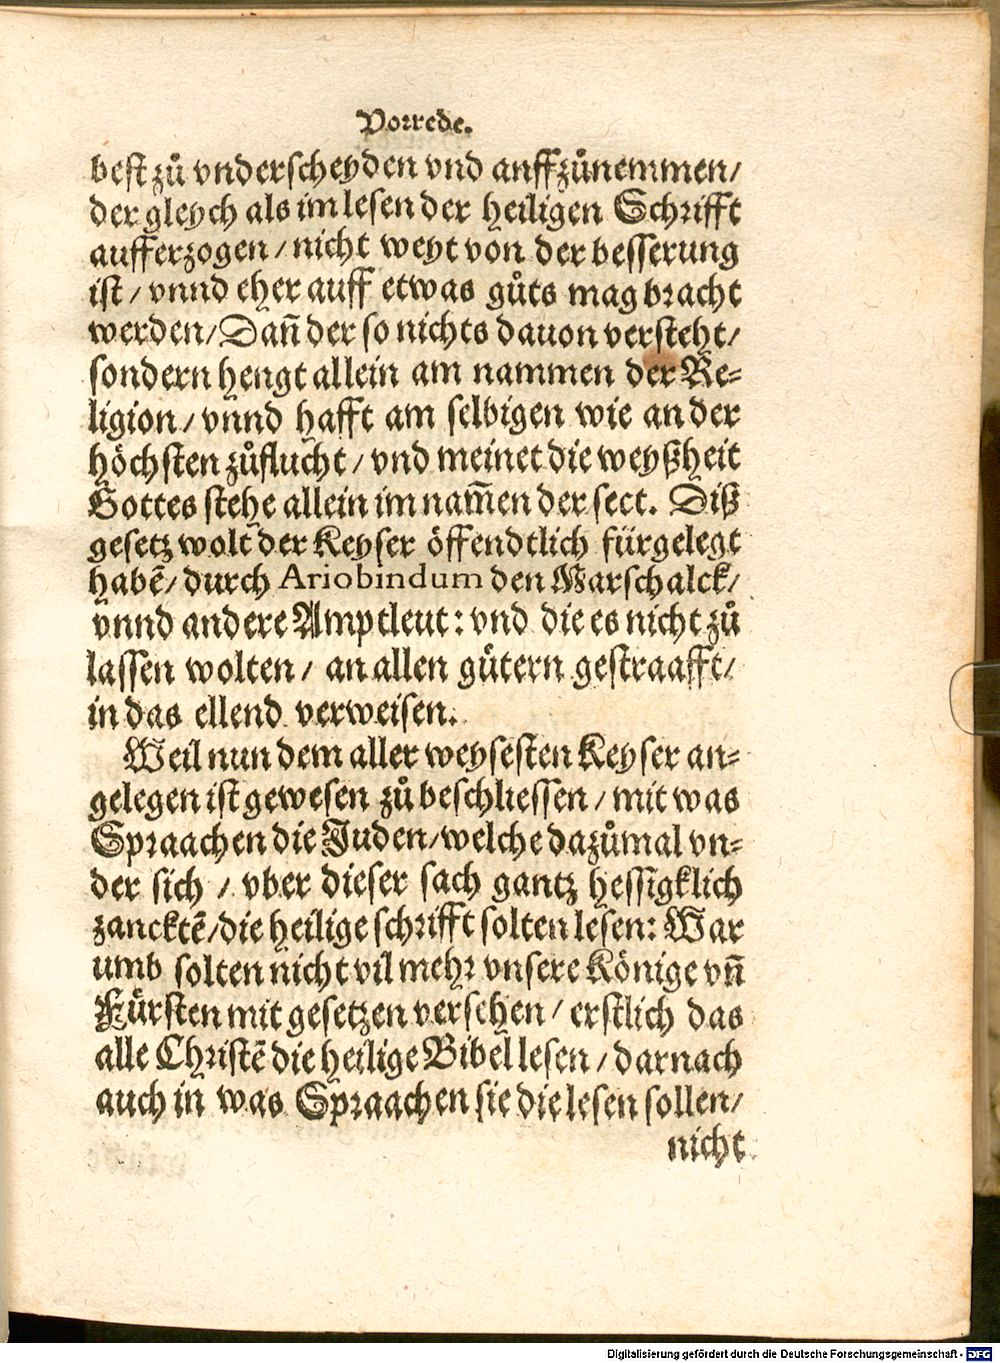 Vorrede.
best zů vnderscheyden vnd anffzůnemmen/
der gleych als im lesen der heiligen Schrifft
aufferzogen/ nicht weyt von der besserung
ist/ vnnd eher auff etwas gůts mag bracht
werden/ Dañ der so nichts dauon versteht/
sondern hengt allein am nammen der Re-
ligion/ vnnd hafft am selbigen wie an der
höchsten zůflucht/ vnd meinet die weyßheit
Gottes stehe allein im nam̃en der sect. Diß
gesetz wolt der Keyser öffendtlich fürgelegt
habẽ/ durch Ariobindum den Marschalck/
vnnd andere Amptleut: vnd die es nicht zů
lassen wolten/ an allen gütern gestraafft/
in das ellend verweisen.
Weil nun dem aller weysesten Keyser an-
gelegen ist gewesen zů beschliessen/ mit was
Spraachen die Juden/ welche dazůmal vn-
der sich/ vber dieser sach gantz hessigklich
zancktẽ/ die heilige schrifft solten lesen: War
umb solten nicht vil mehr vnsere Könige vñ
Fürsten mit gesetzen versehen/ erstlich das
alle Christẽ die heilige Bibel lesen/ darnach
auch in was Spraachen sie die lesen sollen/
nicht
Digitalisierung gefördert durch die Deutsche Forschungsgemeinschaft - DFG